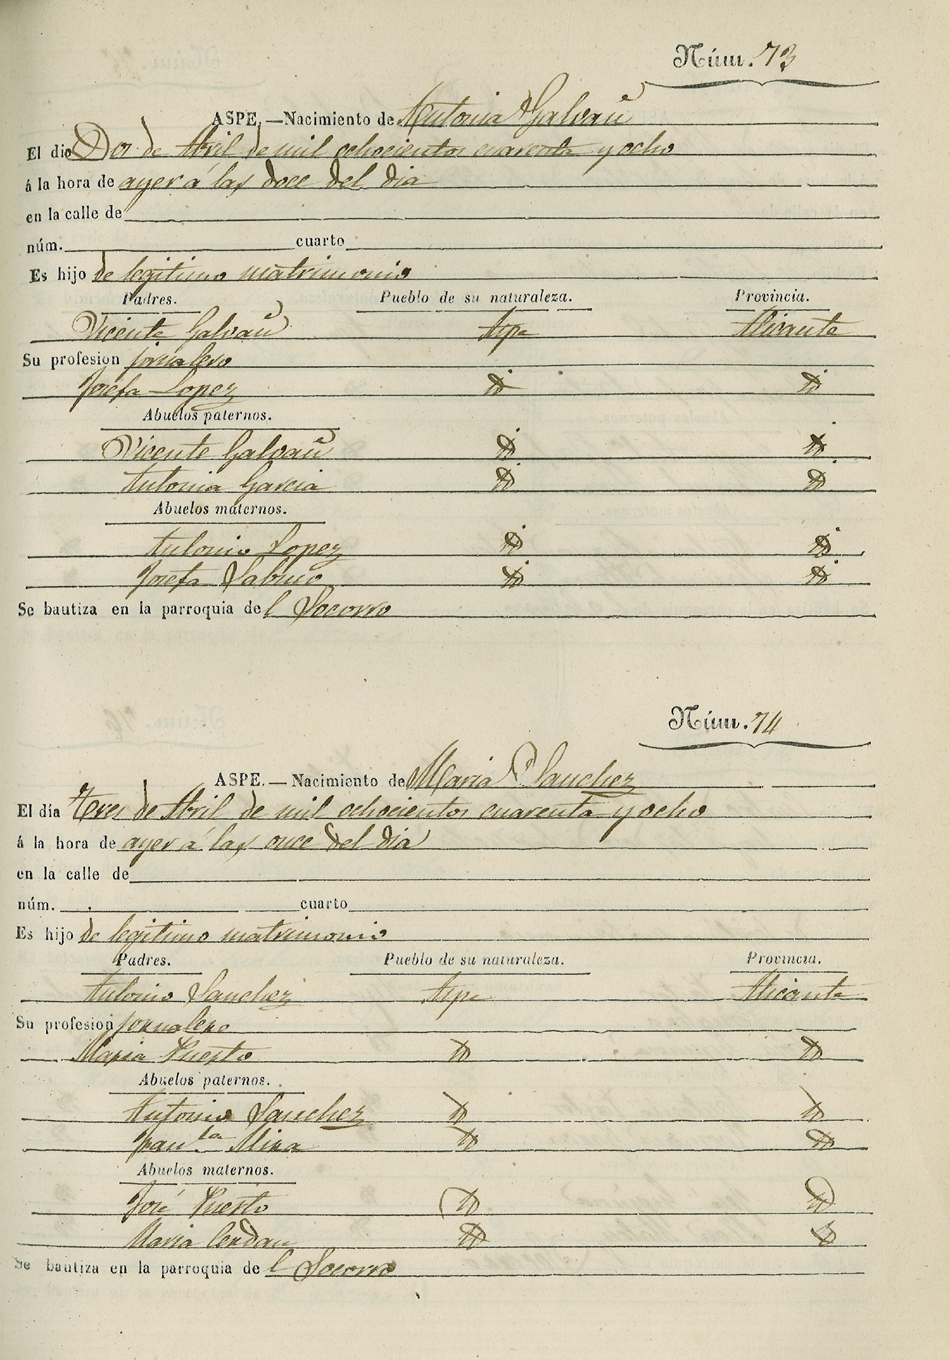 Núm. 73
ASPE.—Nacimiento de Antonia Galvañ
El dia Dos de Abril de mil ochocientos cuarenta y ocho
á la hora de ayer á las doce del dia
en la calle de
núm. cuarto
Es hijo de legitimo matrimonio
Padres. Pueblo de su naturaleza. Provincia.
Vicente Galvañ Aspe Alicante
Su profesion jornalero
Josefa Lopez id id
Abuelos paternos.
Vicente Galvañ id id
Antonia Garcia id id
Abuelos maternos.
Antonio Lopez id id
Josefa Sabuco id id
Se bautiza en la parroquia del Socorro
Núm. 74
ASPE.—Nacimiento de Maria Sanchez
El día Tres de Abril de mil ochocientos cuarenta y ocho
á la hora de ayer á las once del dia
en la calle de
núm. cuarto
Es hijo de legitimo matrimonio
Padres. Pueblo de su naturaleza. Provincia.
Antonio Sanchez Aspe Alicante
Su profesion jornalero
Maria Puerto id id
Abuelos paternos.
Antonio Sanchez id id
Fran.ca Mira id id
Abuelos maternos.
José Puerto id id
Maria Cerdan id id
Se bautiza en la parroquia del Socorro